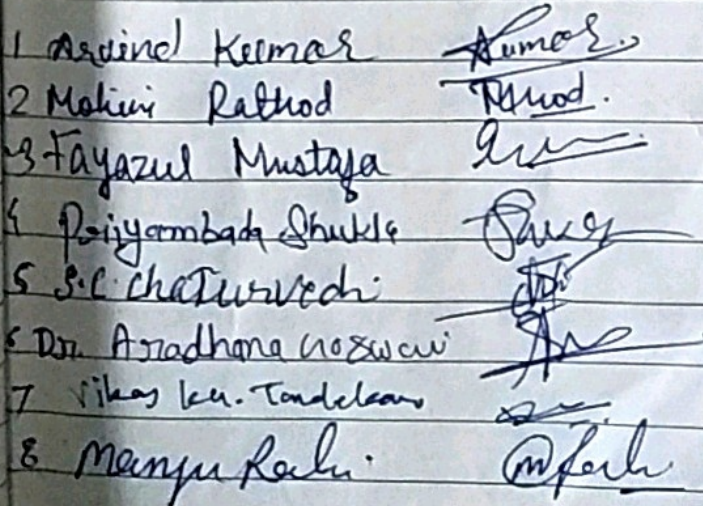 1 Arvind Kumar Kumar.
2 Mohini Rathod Rathod.
3 Fayazul Mustafa
4 Priyambada Shukla
5 S.C. Chaturvedi
6 Dr. Aradhana Goswami
7 Vikas Ku. Tandekar
8 Manju Rahi.